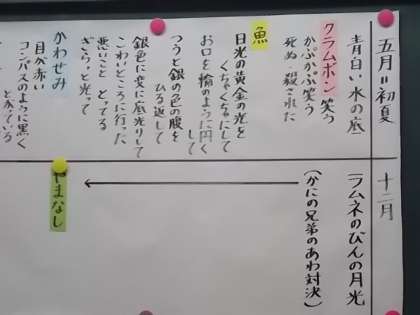 五月=初夏
青白い水の底
クラムボン 笑う
かぷかぷ笑う
死ぬ 殺された
魚
日光の黄金の光を
くちゃくちゃにして
お口を輪のように円くして
つうと銀の色の腹を
ひる返して
銀色に変に底光りして
こわいところに行った
悪いこと とってる
ぎらっと光って
かわせみ
目が赤い
コンパスのように黒く
とがっている
十二月
ラムネのびんの月光
(かにの兄弟のあわ対決)
やまなし